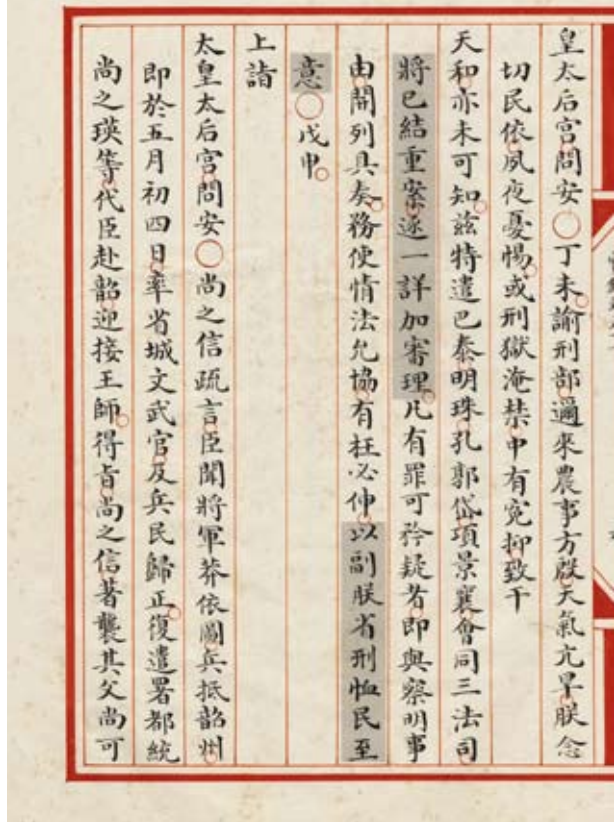 皇太后宮問安○丁未諭刑部邇來農事方殷天氣亢旱朕念
切民依夙夜憂惕或刑獄淹禁中有冤抑致干
天和亦未可知茲特遣巴泰明珠孔郭岱項景襄會同三法司
將已結重案逐一詳加審理凡有罪可矜疑者即與察明事
由開列具奏務使情法允協有枉必伸以副朕省刑恤民至
意○戊申
上詣
太皇太后宮問安○尚之信疏言臣聞將軍莽依圖兵抵韶州
即於五月初四日率省城文武官及兵民歸正復遣署都統
尚之瑛等代臣赴韶迎接王師得旨尚之信著襲其父尚可